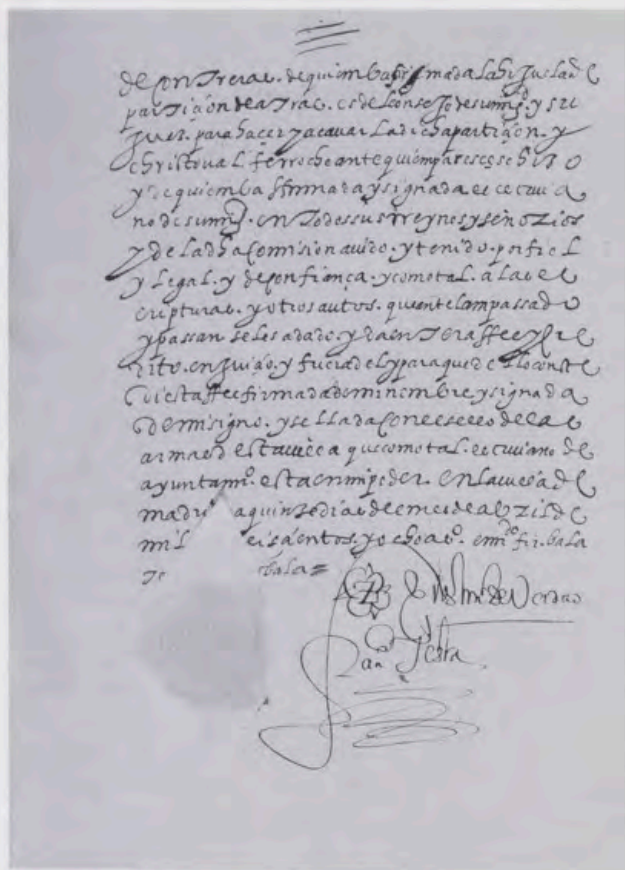 de contreras. de quien va firmada la hijuela de
partiçion de atras. es del consejo de su mgd. y su
juez. para haçer y acavar la dicha partiçion. y
christoval ferroche ante quien pareçe se hizo
y de quien va firmada y signada es escriva
no de su mgd. en todos sus rreynos y señorios
y de la dha comision avido. y tenido. por fiel
y legal. y de confiança. y como tal. a las es
cripturas. y otros autos. que ante el an passado
y passan se les a dado. y da entera ffee y cre
dito. en juiçio. y fuera del y para que dello conste
di esta ffee firmada de mi nombre. y signada
de mi signo. y sellada con el sello de las
armas desta villa que como tal. escrivano de
ayuntamio. esta en mi poder. en la villa de
madri a quinçe dias de el mes de abril de
mil eisçientos. y ocho as. emdo fir. bala
bala=
En testimo de Verdad
Franco Testa